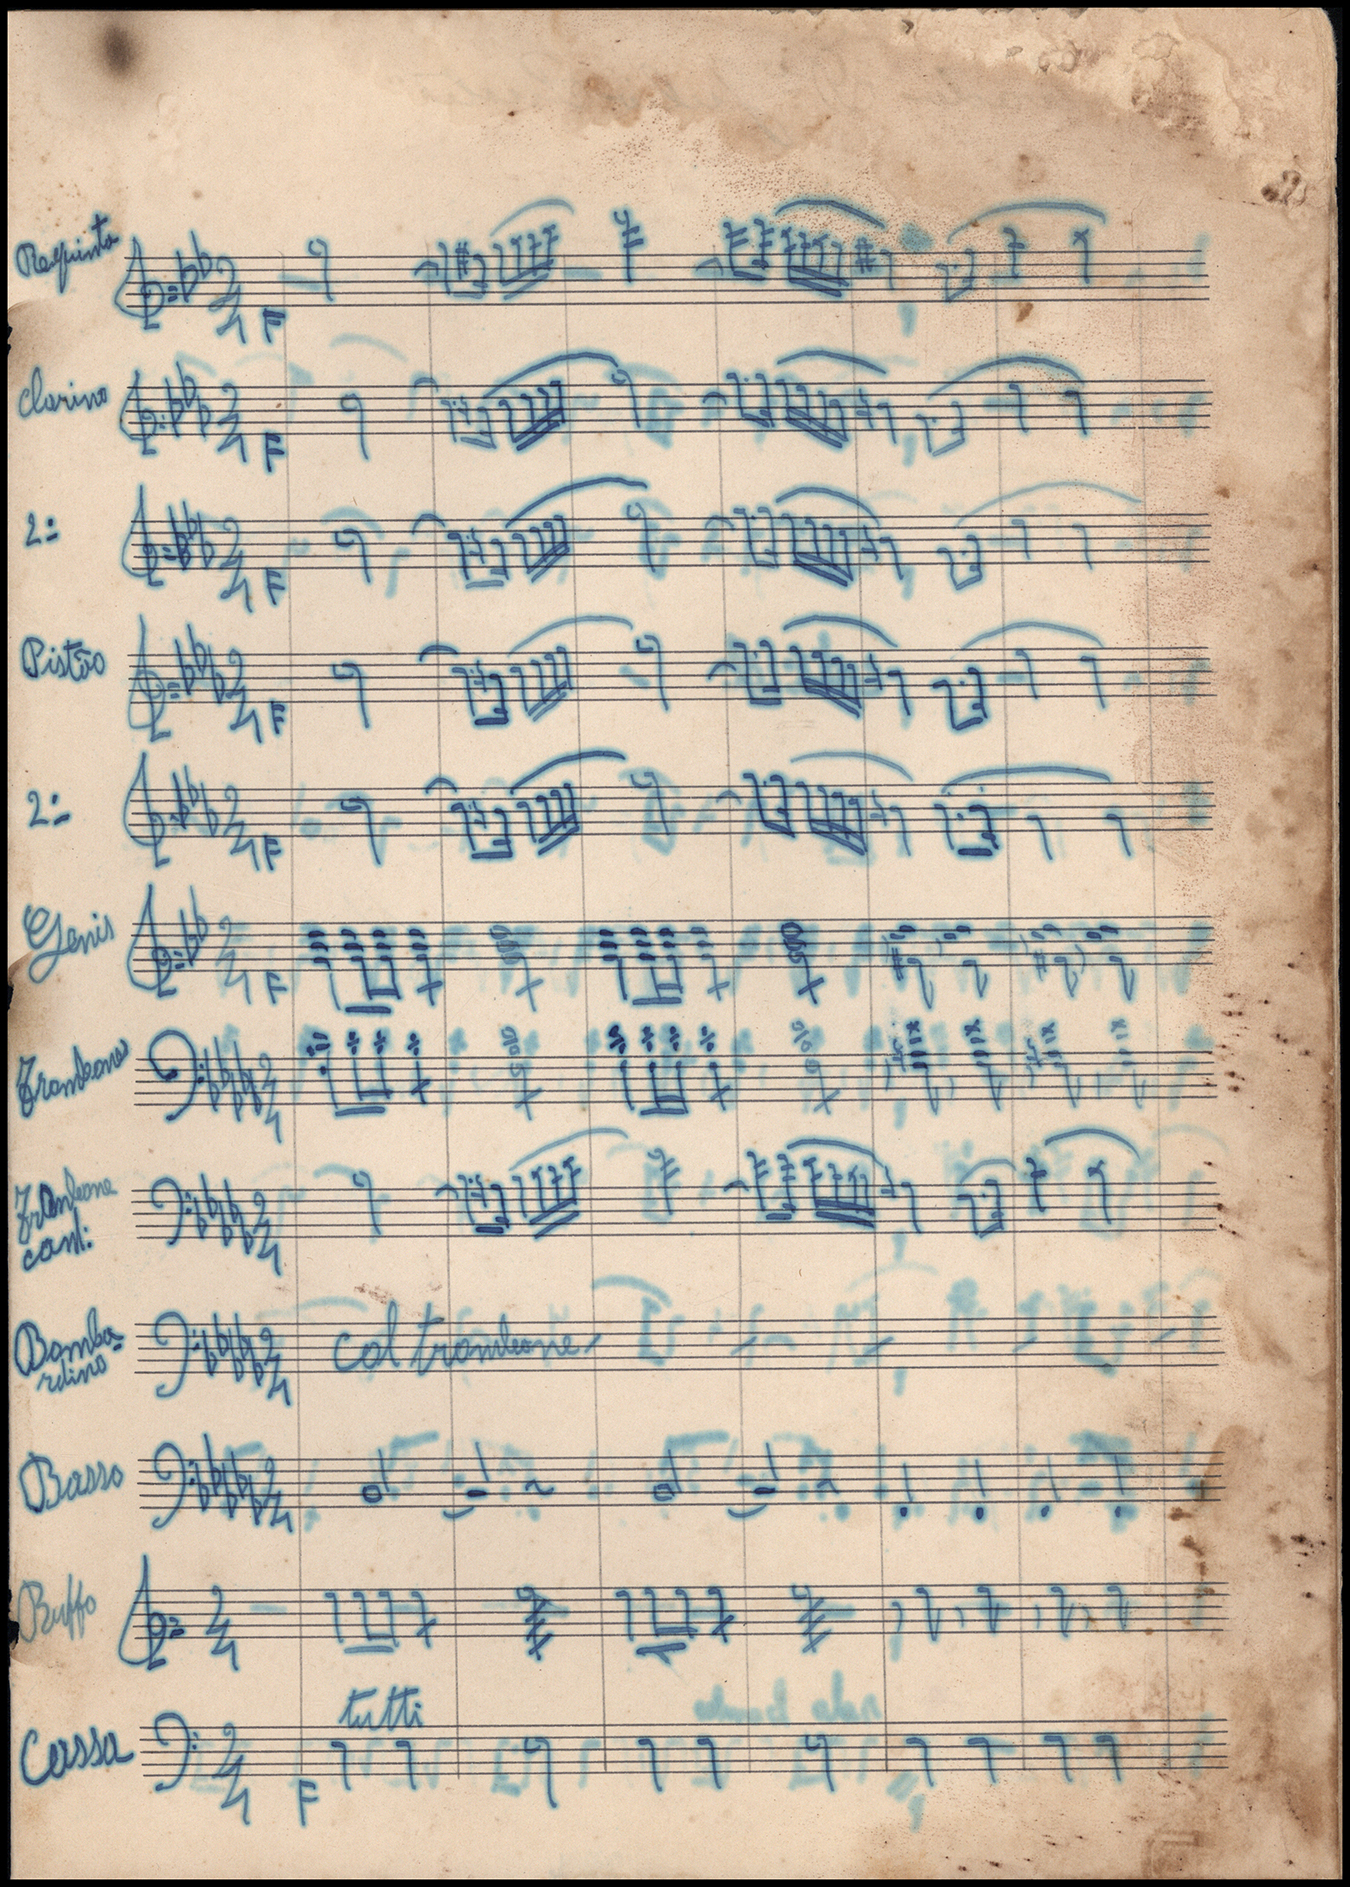 Requinta
F
Clarino
F
2º
F
Pistão
F
2º
F
Genis
F
Trombone
Trombone
cant:
Bomba-
rdino
col trombone
Basso
Ruffo
tutti
Cassa
F